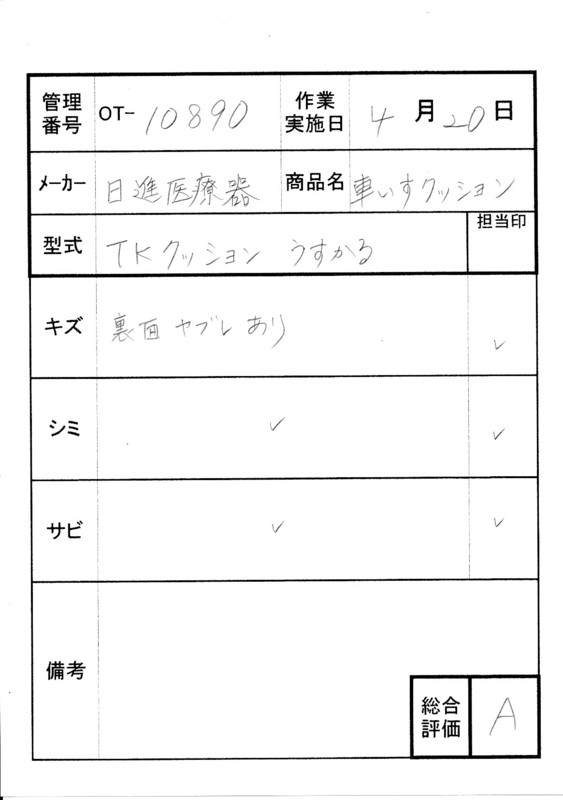 管理番号 OT-10890 作業実施日 4月20日
メーカー 日進医療器 商品名 車いすクッション
型式 TKクッション うすかる 担当印
キズ 裏面 ヤブレ あり ✓
シミ ✓ ✓
サビ ✓ ✓
備考
総合評価 A